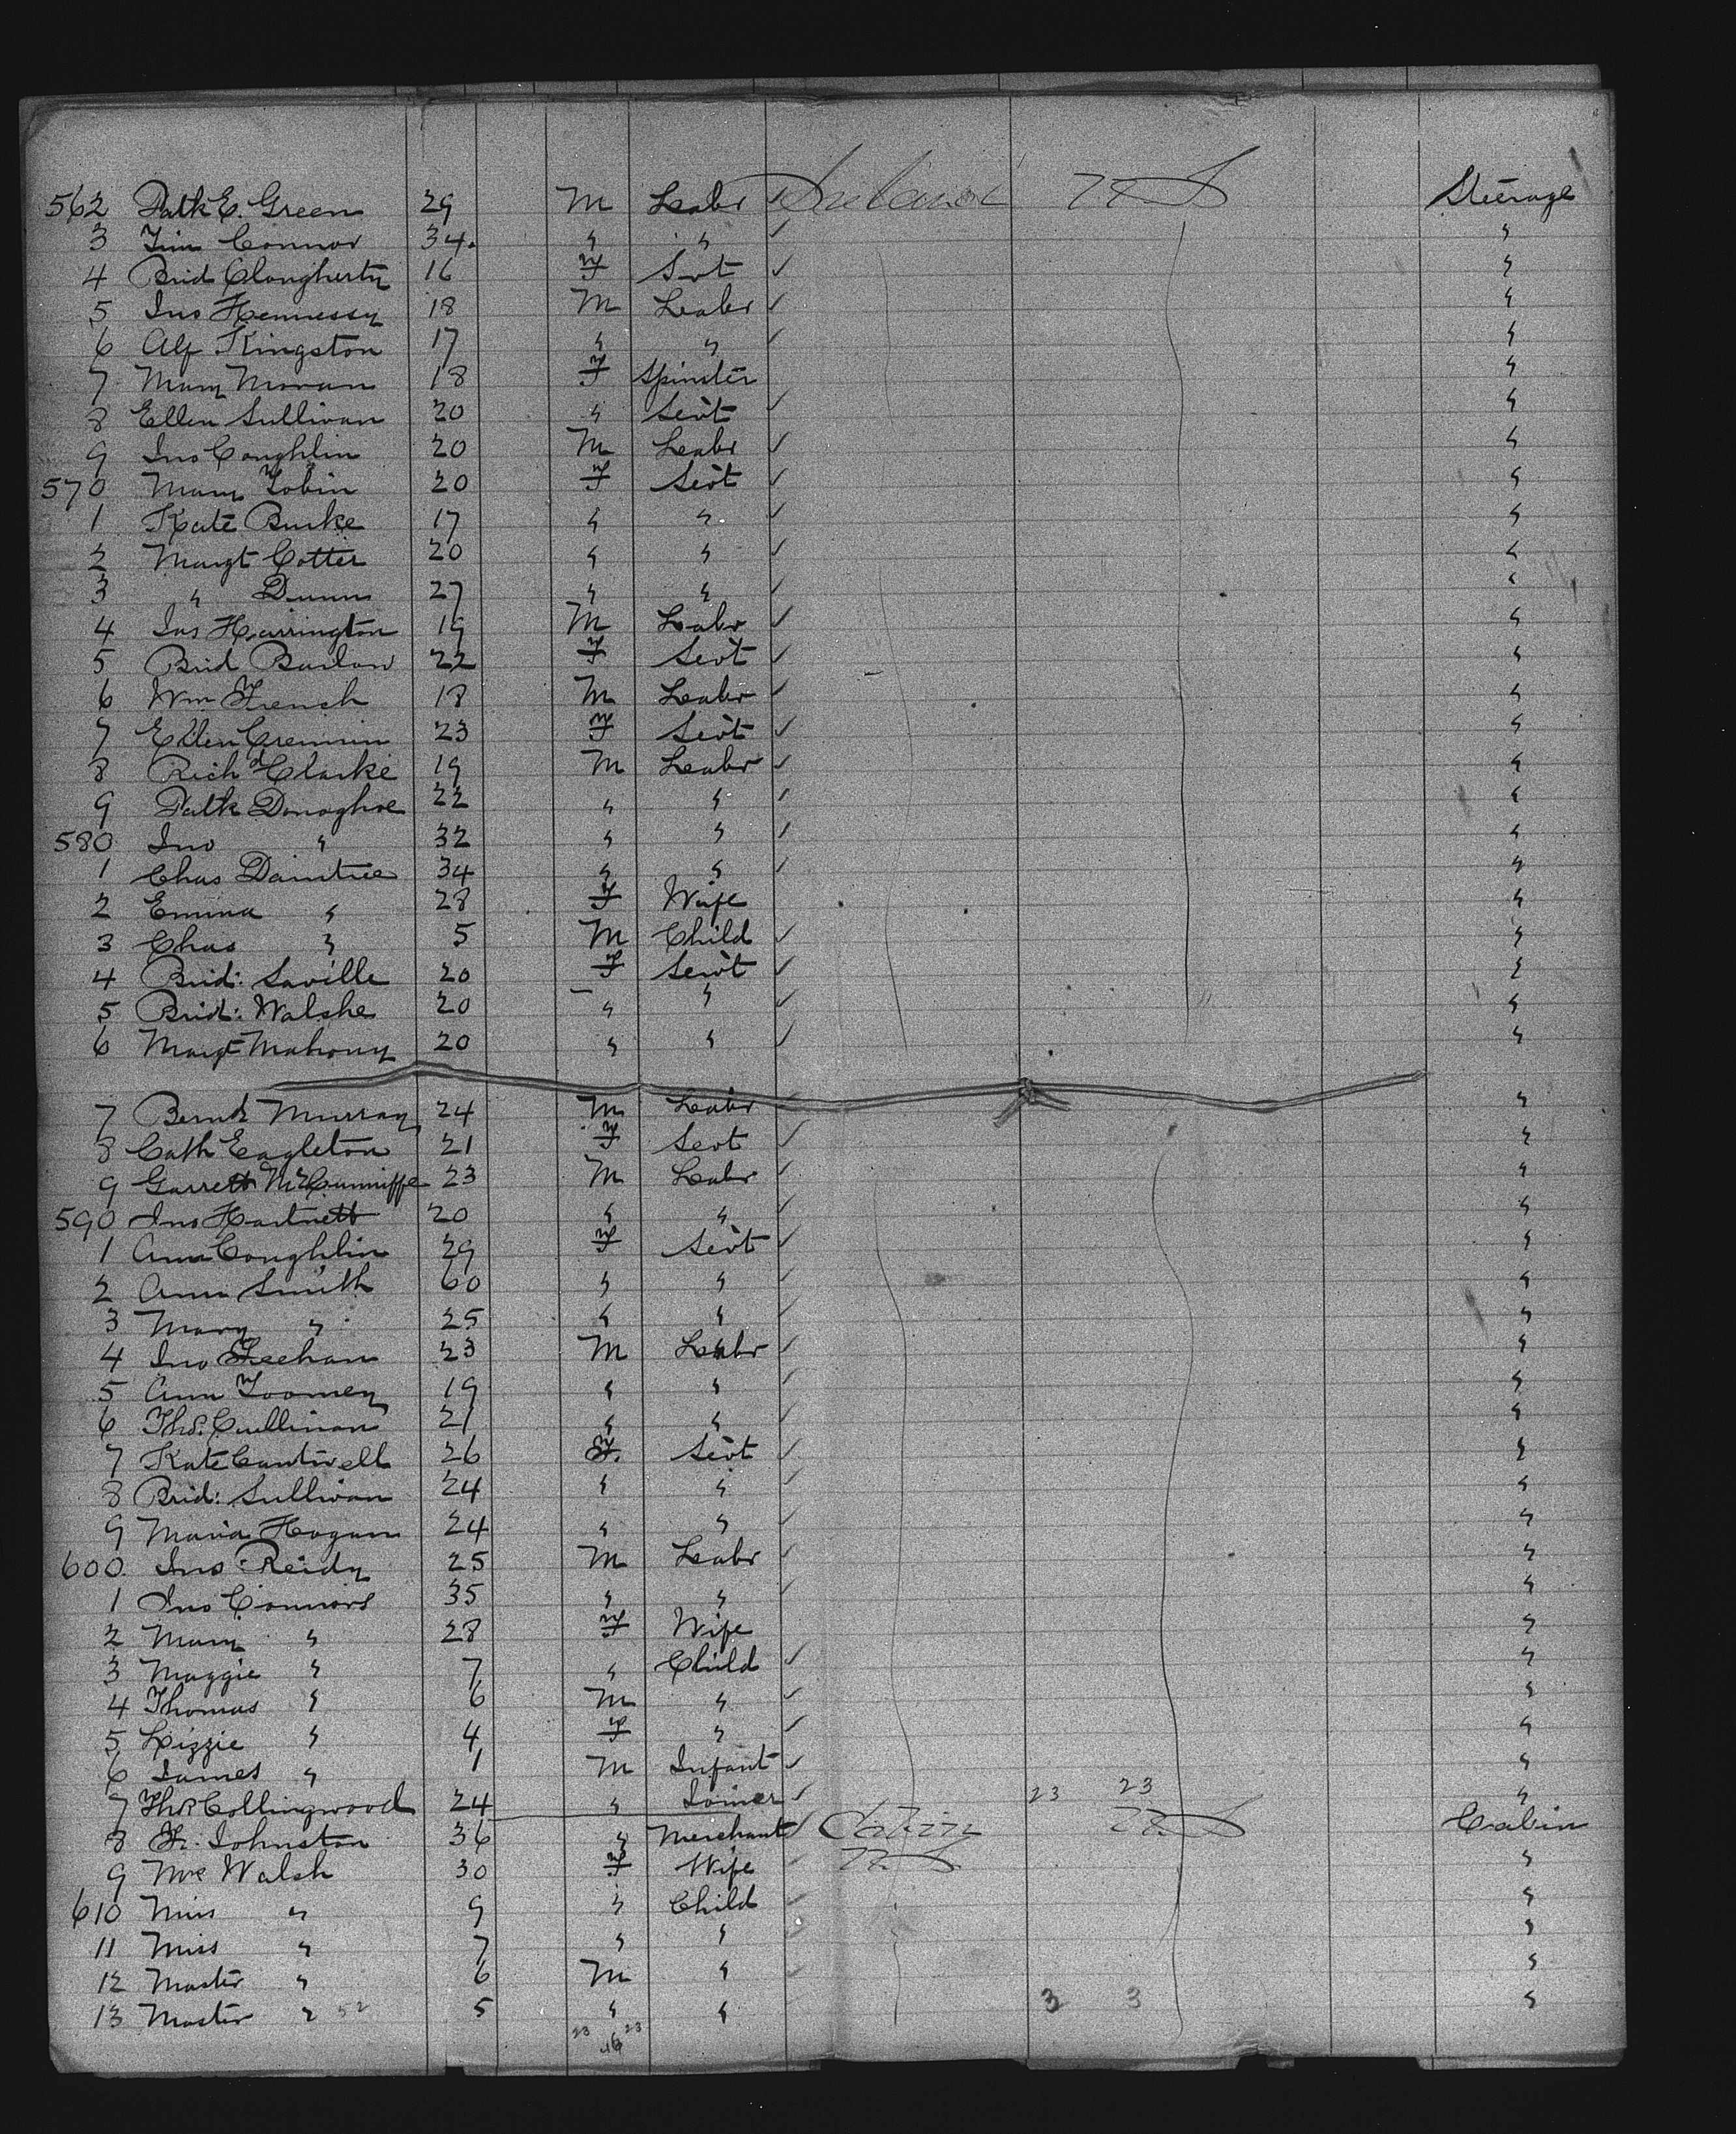 562 Patk E. Green 29 M Labr Ireland U S Steerage
3 Tim Connor 34 " " "
4 Brid Clougherty 16 F Svt "
5 Jno Hennessy 18 M Labr "
6 Alf Kingston 17 " " "
7 Mary Moran 18 F Spinster "
8 Ellen Sullivan 20 " Servt "
9 Jno Coughlin 20 M Labr "
570 Mary Tobin 20 F Servt "
1 Kate Burke 17 " " "
2 Margt Cotter 20 " " "
3 " Dunn 27 " " "
4 Jas Harrington 19 M Labr "
5 Brid Barlow 22 F Servt "
6 Wm French 18 M Labr "
7 Ellen Cremin 23 F Servt "
8 Richd Clarke 19 M Labr "
9 Patk Donoghoe 22 " " "
580 Jno " 32 " " "
1 Chas Daintree 34 " " "
2 Emma " 28 F Wife "
3 Chas " 5 M Child "
4 Brid: Saville 20 F Servt "
5 Brid: Walshe 20 " " "
6 Margt Mahony 20 " " "
7 Bernd Murray 24 M Labr "
8 Cath Eagleton 21 F Servt "
9 Garrett McCunniffe 23 M Labr "
590 Jno Hartnett 20 " " "
1 Ann Coughlin 29 F Servt "
2 Ann Smith 60 " " "
3 Mary " 25 " " "
4 Jno Feehan 23 M Labr "
5 Ann Toomey 19 " " "
6 Thos. Cullinan 21 " " "
7 Kate Cantwell 26 F. Servt "
8 Brid: Sullivan 24 " " "
9 Maria Hogan 24 " " "
600 Jno Reidy 25 M Labr "
1 Jno Connors 35 " " "
2 Mary " 28 F Wife "
3 Maggie " 7 " Child "
4 Thomas " 6 M " "
5 Lizzie " 4 F " "
6 James " 1 M Infant "
7 Thos Collingwood 24 " Joiner 23 23 "
8 Fr. Johnston 36 " Merchant Citizn U S Cabin
9 Mrs Walsh 30 F Wife U.S. "
610 Miss " 9 " Child "
11 Miss " 7 " " "
12 Master " 6 M " "
13 Master " 52 5 " " 3 3 "
23 23